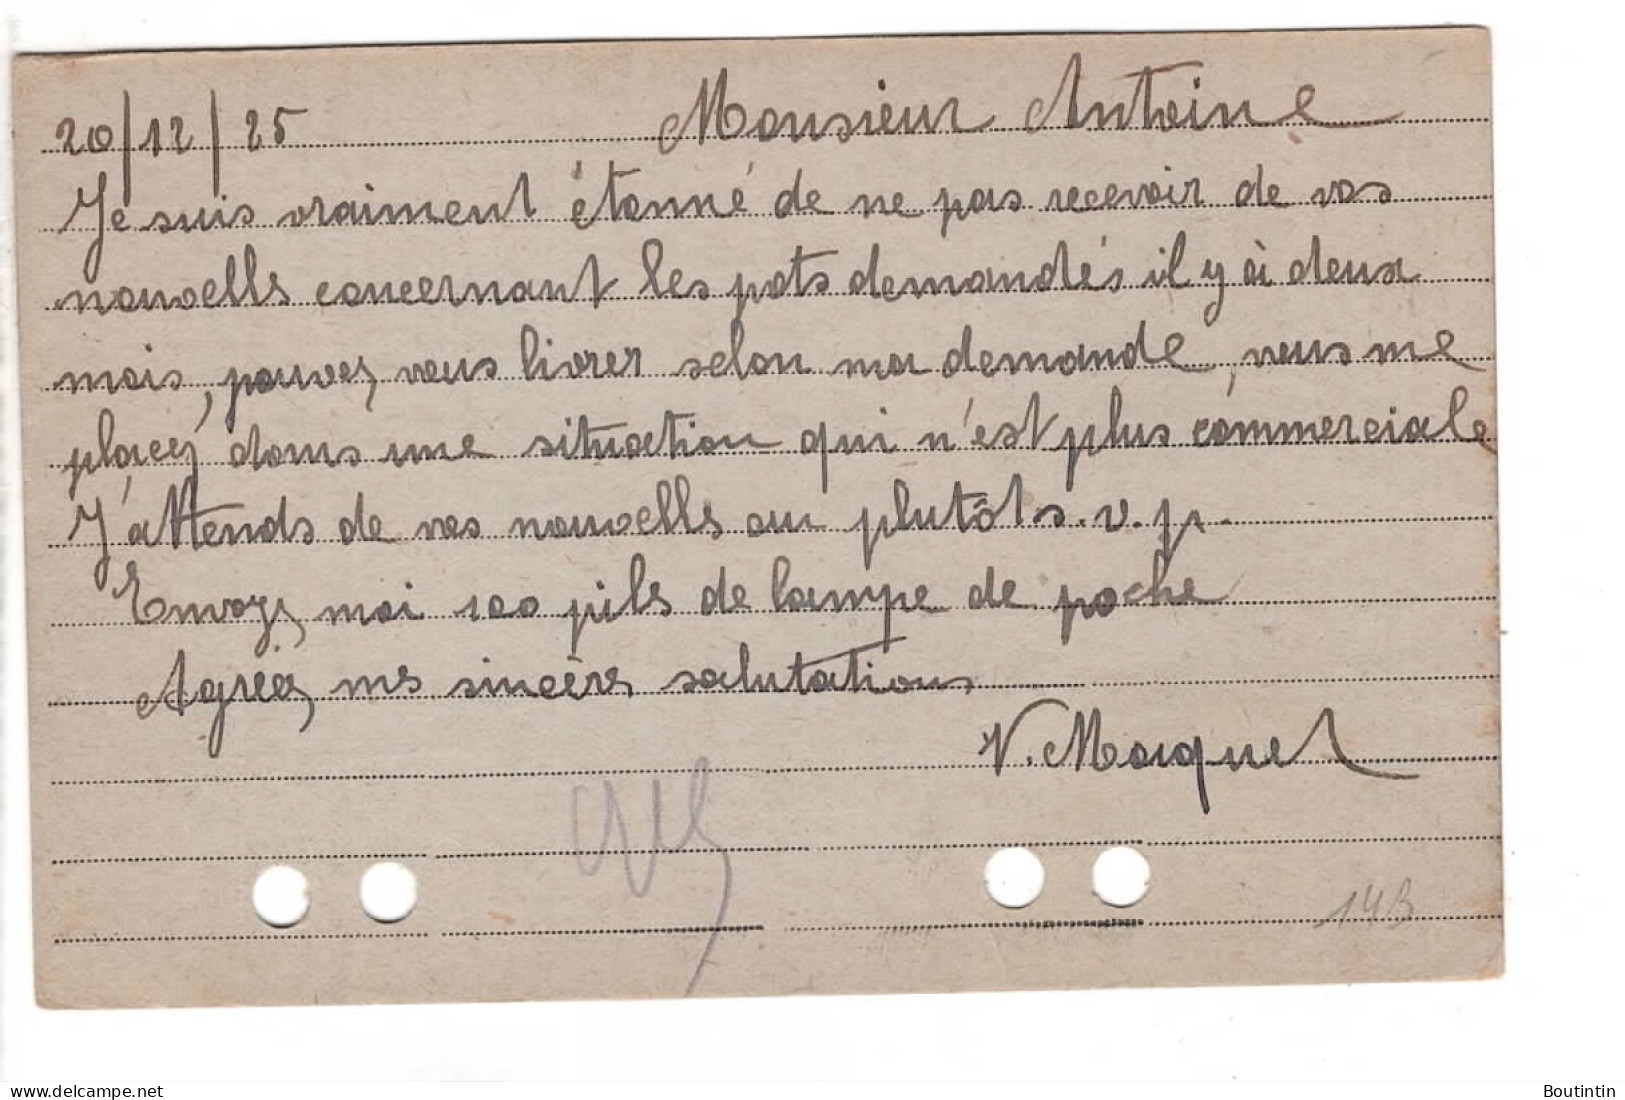 20/12/25 Monsieur Antoine
Je suis vraiment étonné de ne pas recevoir de vos
nouvells concernant les pots demandés il y à deux
mois, pouvez vous livrer selon ma demande, vous me
placez dans une situation qui n'est plus commerciale
J'attends de vos nouvells au plutôt s.v.p.
Envoyz moi 100 pils de lampe de poche
Agréez ms sincèrs salutations
V. Maquet
14B
delcampe.net
Boutintin